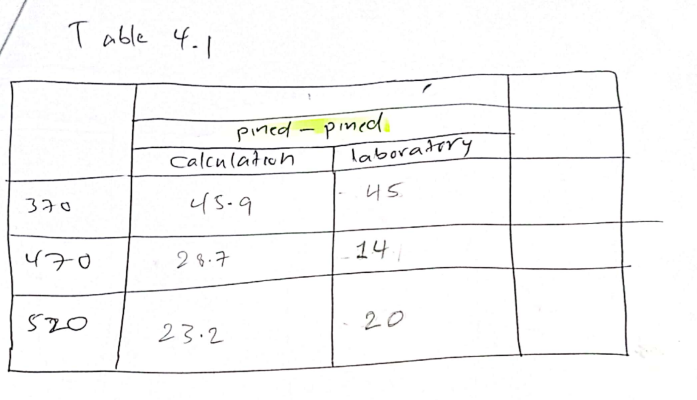 Table 4.1
pined - pined
calculation laboratory
370 45.9 45
470 28.7 14
520 23.2 20